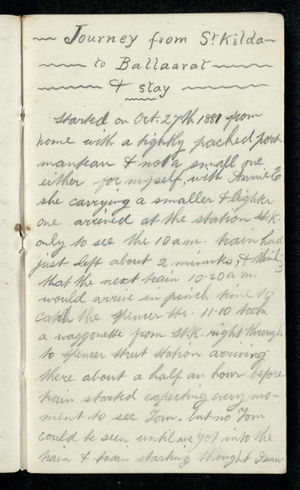 Journey from St Kilda
to Ballaarat
& stay
Started on Oct. 27th 1881 from
home with a tightly packed port-
manteau & not a small one
either for myself, with Annie E
she carrying a smaller & lighter
one arrived at the station St.K.
only to see the 10 a.m. train had
just left about 2 minutes, &
that the next train 10.20 a.m.
would arrive in time to
catch the Spencer Str. 11.10 took
a waggonette from St.K. right through
to Spencer street station arriving
there about a half an hour before
train started expecting every mo-
ment to see Tom. but no Tom
could be seen until we got into the
train & train starting thought I saw